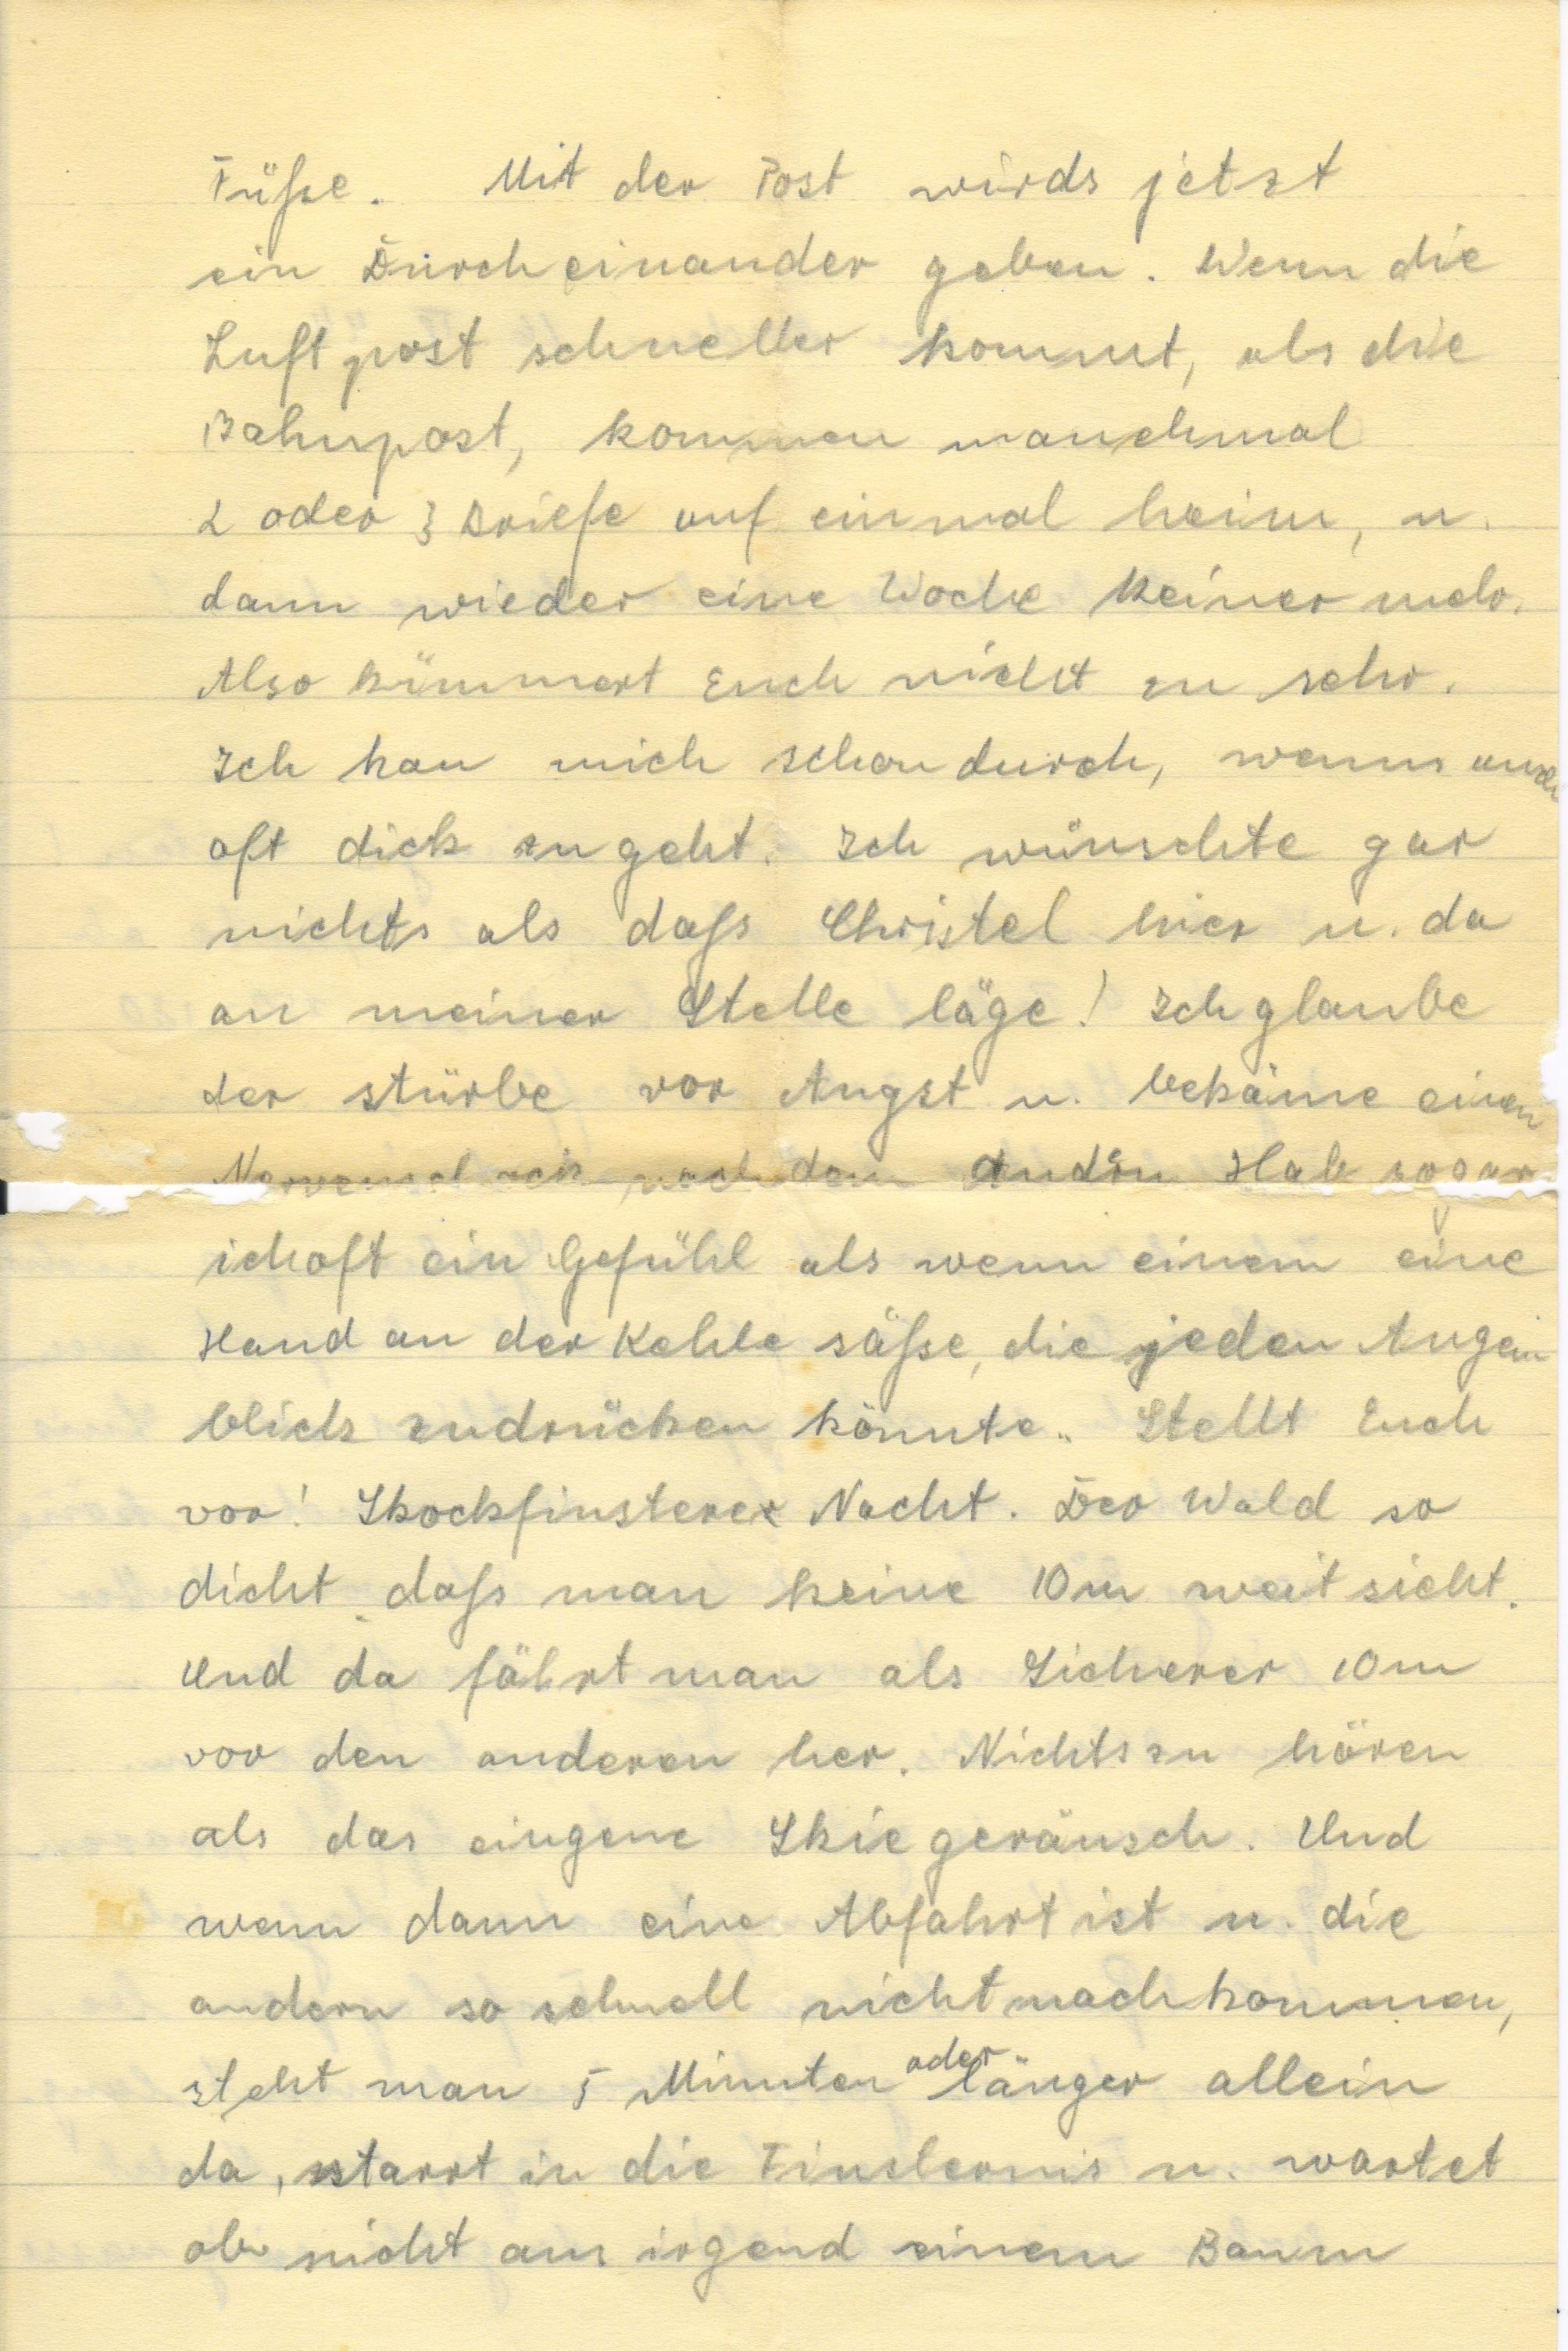 Füße. Mit der Post wirds jetzt
ein Durcheinander geben. Wenn die
Luftpost schneller kommt, als die
Bahnpost, kommen manchmal
2 oder 3 Briefe auf einmal heim, u.
dann wieder eine Woche keiner mehr.
Also kümmert Euch nicht zu sehr.
Ich hau mich schon durch, wenns auch
oft dick zugeht. Ich wünschte gar
nichts als daß Christel hier u. da
an meiner Stelle läge! Ich glaube
der stürbe vor Angst u. bekäme einen
nach dem andern Hab sogar
ich oft ein Gefühl als wenn einem eine
Hand an der Kehle säße, die jeden Augen
blick zudrücken könnte. Stellt Euch
vor! Stockfinstere Nacht. Der Wald so
dicht daß man keine 10m weit sieht.
Und da fährt man als Sicherer 10m
vor den anderen her. Nichts zu hören
als das eingene Skiegeräusch. Und
wenn dann eine Abfahrt ist u. die
andern so schnell nicht nachkommen,
steht man 5 Minuten oder länger allein
da, starrt in die Finsternis u. wartet
ob nicht aus irgend einem Baum